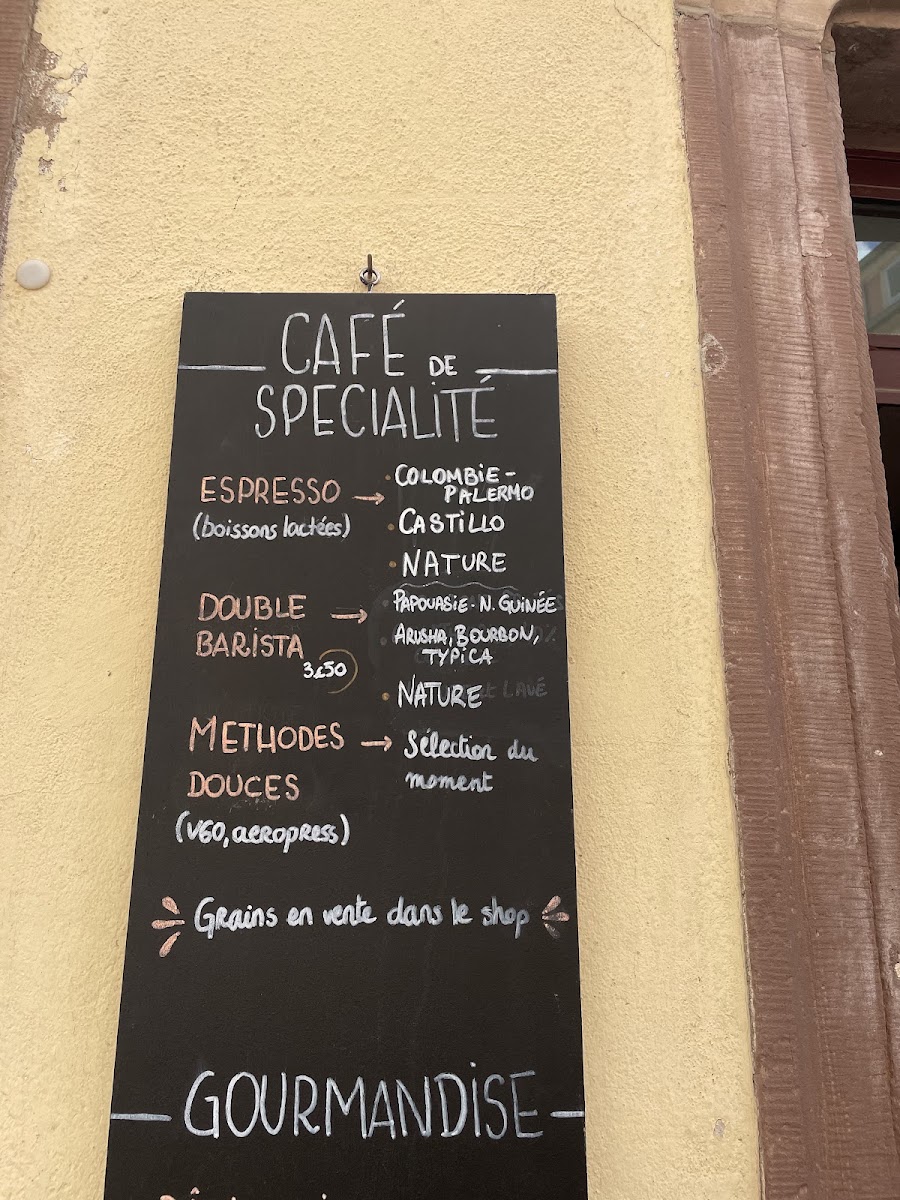 CAFÉ DE
SPECIALITÉ
ESPRESSO →
(boissons lactées)
COLOMBIE-
PALERMO
CASTILLO
NATURE
DOUBLE →
BARISTA
3€50
PAPOUASIE-N. GUINÉE
ARUSHA, BOURBON,
TYPICA
NATURE
METHODES →
DOUCES
(V60, aeropress)
Sélection du
moment
Grains en vente dans le shop
GOURMANDISE